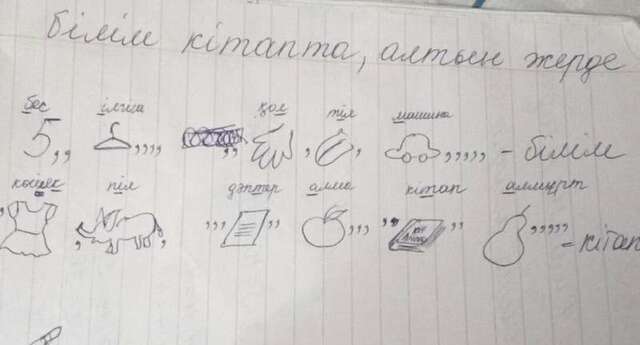 білім кітапта, алтын жерде
бес ілгіш қол тіл машина
5,, ,,,, ,, , , ,,,,, - білім
көйлек піл дәптар алма кітап алмұрт
, , ,,, ,, ,,, ,,, ,, ,,,,, = кітап